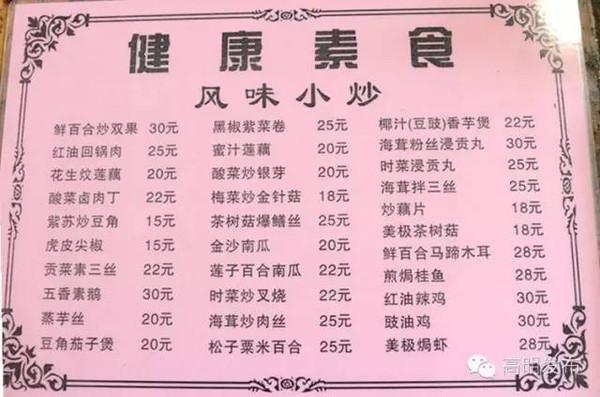 健康素食
风味小炒
鲜百合炒双果 30元
红油回锅肉 25元
花生炆莲藕 20元
酸菜卤肉丁 22元
紫苏炒豆角 15元
虎皮尖椒 15元
贡菜素三丝 22元
五香素鹅 30元
蒸芋丝 20元
豆角茄子煲 20元
黑椒紫菜卷 25元
蜜汁莲藕 20元
酸菜炒银芽 20元
梅菜炒金针菇 18元
茶树菇爆鳝丝 25元
金沙南瓜 20元
莲子百合南瓜 22元
时菜炒叉烧 22元
海茸炒肉丝 25元
松子粟米百合 25元
椰汁(豆豉)香芋煲 22元
海茸粉丝浸贡丸 30元
时菜浸贡丸 25元
海茸拌三丝 25元
炒藕片 18元
美极茶树菇 18元
鲜百合马蹄木耳 28元
煎焗桂鱼 28元
红油辣鸡 30元
豉油鸡 30元
美极焗虾 28元
高明发布